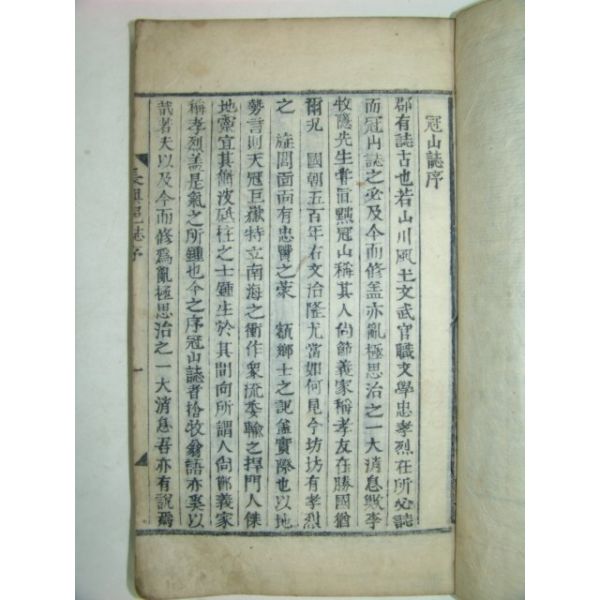 冠山誌序
郡有誌古也若山川風土文武官職文學忠孝烈在所必誌
而冠內誌之必及今而修盖亦亂極思治之一大消息歟李
牧隱先生甞冠山稱其人尙節義家稱孝友在勝國猶
爾况 國朝五百年右文治隆尤當如何見今坊坊有孝烈
之 旌閭面面有忠賢之 額鄕士之記實際也以地
勢言則天冠巨嶽特立南海之衝作衆流委輸之捍門人傑
地靈宜其衝波砥柱之士鍾生於其間向所謂人尙節義家
稱孝烈盖是氣之所鍾也今之序冠山誌者捨牧翁語亦奚以
哉若夫以及今而修爲亂極思治之一大消息吾亦有說焉
長興邑誌序
一